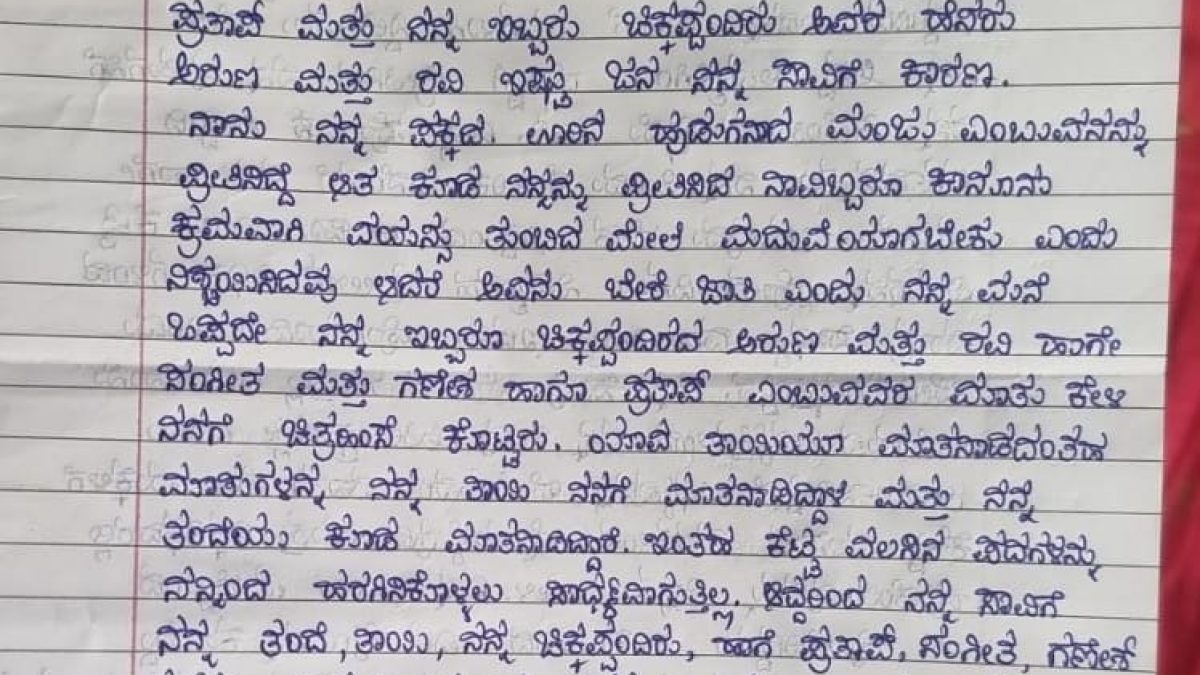 ಪ್ರತಾಪ್ ಮತ್ತು ನನ್ನ ಇಬ್ಬರು ಚಿಕ್ಕಪ್ಪಂದಿರು ಅವರ ಹೆಸರು
ಅರುಣ ಮತ್ತು ರವಿ ಇಷ್ಟು ಜನ ನನ್ನ ಸಾವಿಗೆ ಕಾರಣ.
ನಾನು ನನ್ನ ಪಕ್ಕದ. ಊರಿನ ಹುಡುಗನಾದ ಮಂಜು ಎಂಬುವನನ್ನು
ಪ್ರೀತಿಸಿದ್ದೆ ಆತ ಕೂಡ ನನ್ನನ್ನು ಪ್ರೀತಿಸಿದ ನಾವಿಬ್ಬರೂ ಕಾನೂನು
ಕ್ರಮವಾಗಿ ವಯಸ್ಸು ತುಂಬಿದ ಮೇಲೆ ಮದುವೆಯಾಗಬೇಕು ಎಂದು
ನಿಶ್ಚಯಿಸಿದವು ಆದರೆ ಅವನು ಬೇರೆ ಜಾತಿ ಎಂದು ನನ್ನ ಮನೆ
ಒಪ್ಪದೇ ನನ್ನ ಇಬ್ಬರೂ ಚಿಕ್ಕಪ್ಪಂದಿರದ ಅರುಣ ಮತ್ತು ರವಿ ಹಾಗೇ
ಸಂಗೀತ ಮತ್ತು ಗಣೇಶ ಹಾಗೂ ಪ್ರತಾಪ್ ಎಂಬುವವರ ಮಾತು ಕೇಳಿ
ನನಗೆ ಚಿತ್ರಹಿಂಸೆ ಕೊಟ್ಟರು. ಯಾವ ತಾಯಿಯೂ ಮಾತನಾಡದಂತಹ
ಮಾತುಗಳನ್ನ ನನ್ನ ತಾಯಿ ನನಗೆ ಮಾತನಾಡಿದ್ದಾಳೆ ಮತ್ತು ನನ್ನ
ತಂದೆಯು ಕೂಡ ಮಾತನಾಡಿದ್ದಾರೆ. ಇಂತಹ ಕೆಟ್ಟ ವಲಸಿನ ಪದಗಳನ್ನು
ನನ್ನಿಂದ ಹರಗಿಸಿಕೊಳ್ಳಲು ಸಾರ್ಧ್ಯವಾಗುತ್ತಿಲ್ಲ. ಆದ್ದರಿಂದ ನನ್ನ ಸಾವಿಗೆ
ನನ್ನ ತಂದೆ, ತಾಯಿ, ನನ್ನ ಚಿಕ್ಕಪ್ಪಂದಿರು, ಹಾಗೆ ಪ್ರತಾಪ್, ಸಂಗೀತ, ಗಣೇಶ್